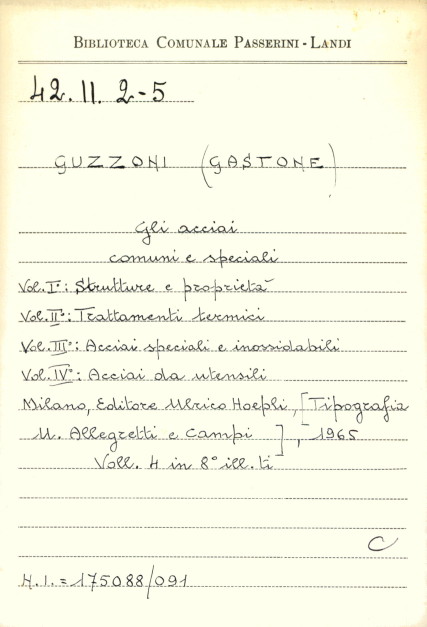 BIBLIOTECA COMUNALE PASSERINI-LANDI
42.II.2-5
GUZZONI (GASTONE)
Gli acciai
comuni e speciali
Vol. I°: Strutture e proprietà
Vol. II°: Trattamenti termici
Vol. III°: Acciai speciali e inossidabili
Vol. IV°: Acciai da utensili
Milano, Editore Ulrico Hoepli, [Tipografia
U. Allegretti e Campi], 1965
Voll. 4 in 8° ill. ti
C
N.I.=175088/091